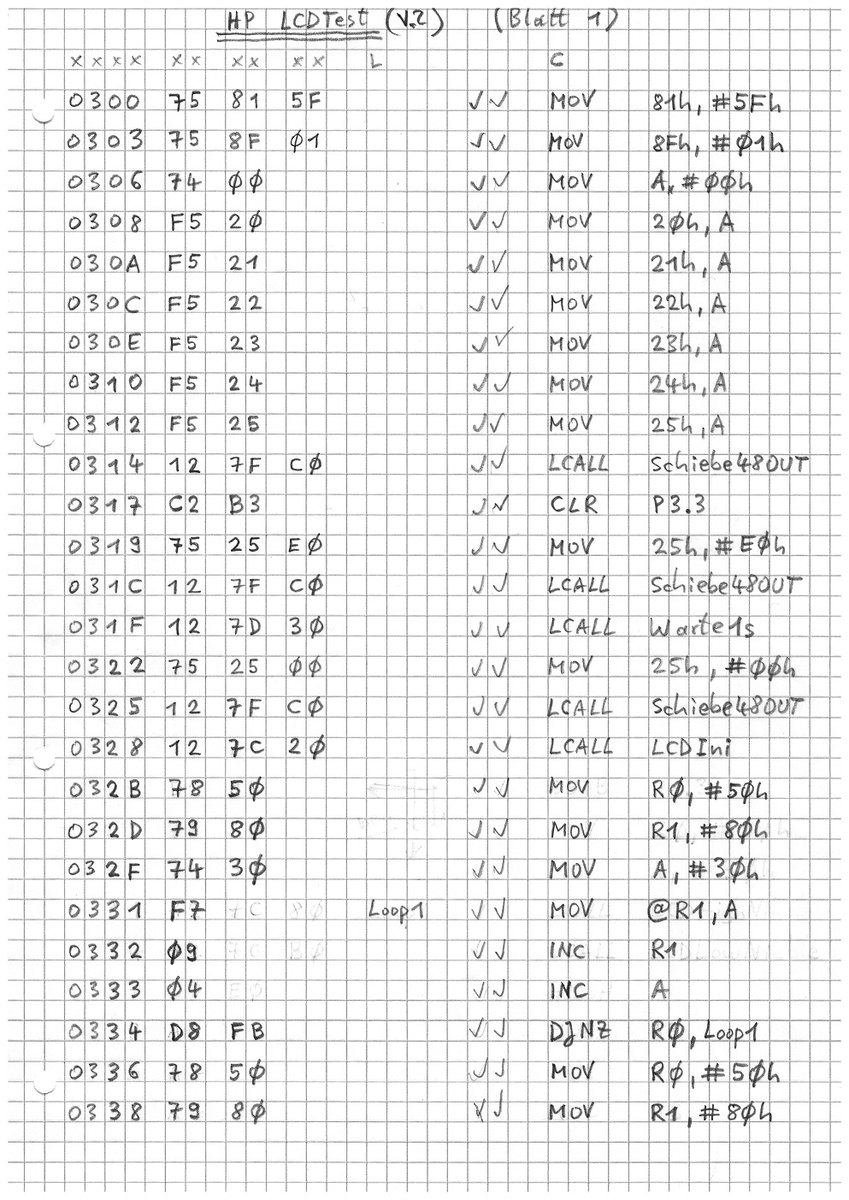 HP LCDTest (V.2) (Blatt 1)
x x x x x x x x x x L C
0300 75 81 5F ✓✓ MOV 81h, #5Fh
0303 75 8F Ø1 ✓✓ MOV 8Fh, #Ø1h
0306 74 ØØ ✓✓ MOV A, #ØØh
0308 F5 2Ø ✓✓ MOV 2Øh, A
030A F5 21 ✓✓ MOV 21h, A
030C F5 22 ✓✓ MOV 22h, A
030E F5 23 ✓✓ MOV 23h, A
0310 F5 24 ✓✓ MOV 24h, A
0312 F5 25 ✓✓ MOV 25h, A
0314 12 7F CØ ✓✓ LCALL Schiebe48OUT
0317 C2 B3 ✓✓ CLR P3.3
0319 75 25 EØ ✓✓ MOV 25h, #EØh
031C 12 7F CØ ✓✓ LCALL Schiebe48OUT
031F 12 7D 3Ø ✓✓ LCALL Warte1s
0322 75 25 ØØ ✓✓ MOV 25h, #ØØh
0325 12 7F CØ ✓✓ LCALL Schiebe48OUT
0328 12 7C 2Ø ✓✓ LCALL LCDIni
032B 78 5Ø ✓✓ MOV RØ, #5Øh
032D 79 8Ø ✓✓ MOV R1, #8Øh
032F 74 3Ø ✓✓ MOV A, #3Øh
0331 F7 Loop1 ✓✓ MOV @R1, A
0332 Ø9 ✓✓ INC R1
0333 Ø4 ✓✓ INC A
0334 D8 FB ✓✓ DJNZ RØ, Loop1
0336 78 5Ø ✓✓ MOV RØ, #5Øh
0338 79 8Ø ✓✓ MOV R1, #8Øh